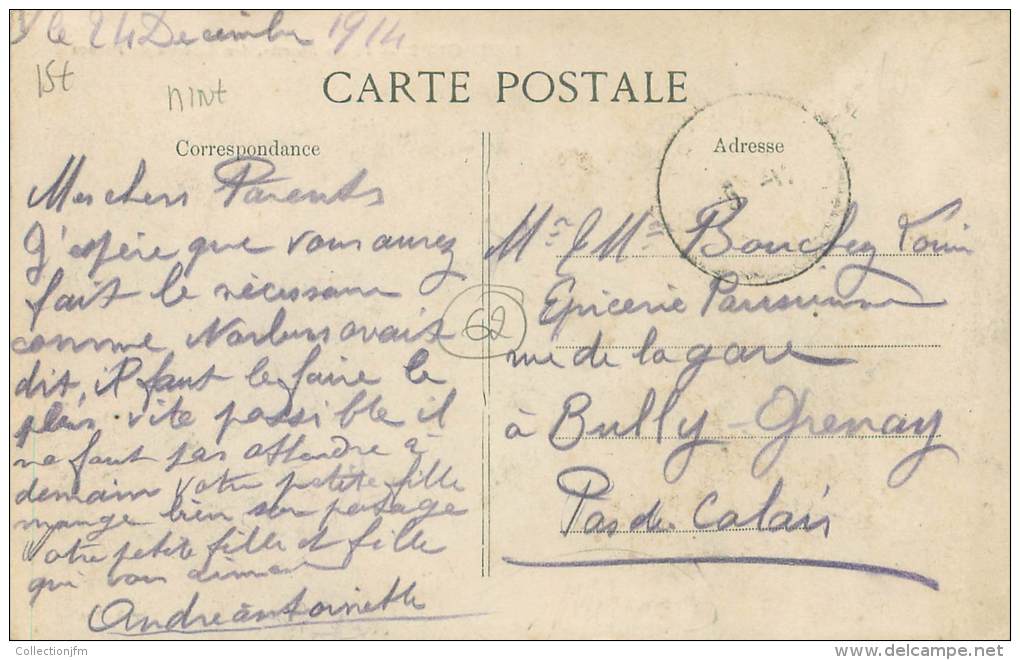 le 24 Decembre 1914
1St
nint
CARTE POSTALE
Correspondance
Adresse
Mes chers Parents
J'espère que vous aurez
fait le nécessaire
comme avait
dit, il faut le faire le
plus vite possible il
ne faut pas attendre à
demain votre petite fille
mange bien son potage
votre petite fille et fille
qui vous aiment
Andre antoinette
Mr & Mme Bouchez Louis
Epicerie Parisienne
rue de la gare
à Bully-Grenay
Pas de Calais
62
Collectionjfm